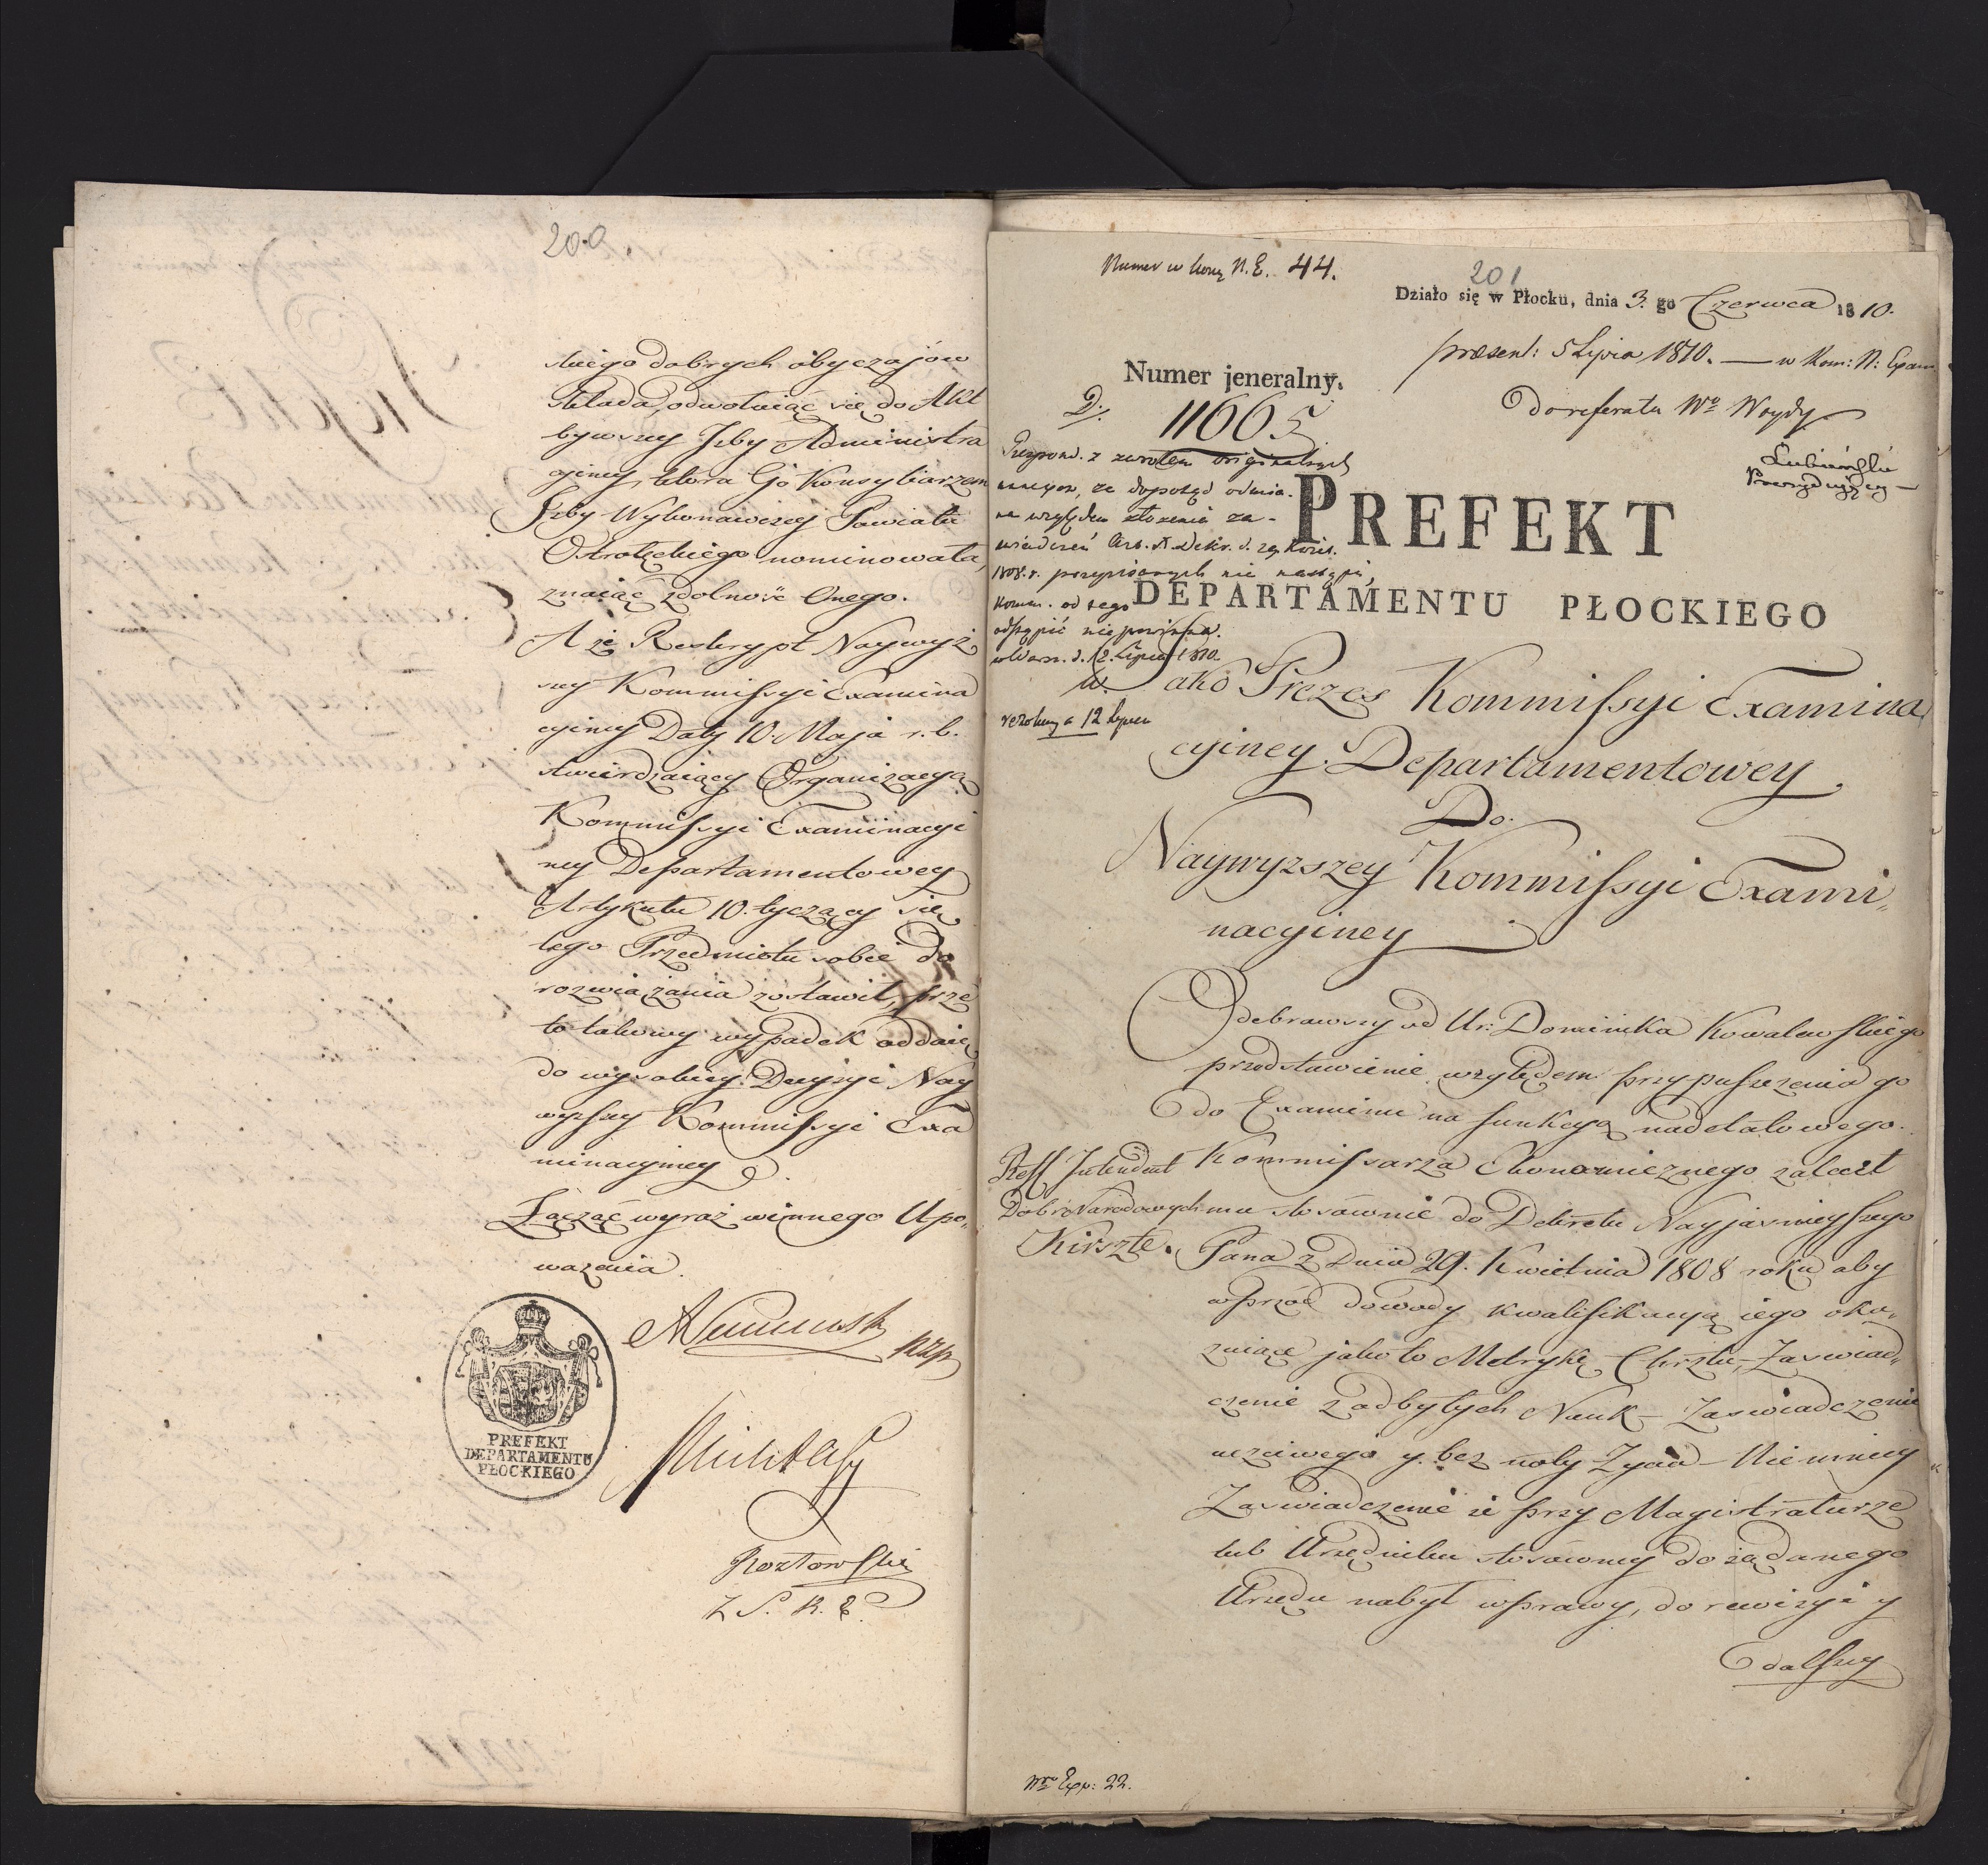 200
skiego dobrych obyczajów
składa, odwołuiąc się do Akt
bywszey Izby Administra
cyiney, która Go Konsyliarzem
Izby Wykonawczey Powiatu
Ostrołęckiego nominowała,
znaiąc zdolność Onego.
A że Reskrypt Naywyż
szey Kommissyi Examina
cyiney Daty 10. Maja r. b.
stwierdzaiący Organizacyą
Kommissyi Examinacyi
ney Departamentowey
Artykułu 10. tyczący się
tego Przedmiotu sobie do
rozwiązania zostawił, prze
to takowy wypadek oddaię
do wysokiey Decyzyi Nay
wyższey Kommissyi Exa
minacyiney.
Łącząc wyraz winnego Upo,
ważenia.
PREFEKT
DEPARTAMENTU
PŁOCKIEGO
Kozłowski
Z S. K. E.
201
Numer w kom N. E. 44.
Działo się w Płocku, dnia 3. go Czerwca 1810.
præsent: 5 Lipca 1810. — w Kom: N: Exam
Numer jeneralny.
Do referatu Wo Woydy
D.
11665
Lubieński
Prezydujący
Respond. z zwrotem originalnych
że dopokąd
na względem złożenia za-
świadczeń Art. Dekr. d. 29 Kwiet.
1808. r. przepisanych nie nastąpi,
Komm. od tego
odstąpić nie powinna.
w Warsz. d. 12. Lipca 1810.
W.
12 Lipca
PREFEKT
DEPARTAMENTU PŁOCKIEGO
Jako Prezes Kommissyi Examina,
cyiney Departamentowey
Do.
Naywyższey Kommissyi Exami,
nacyiney
Odebrawszy od Ur: Dominika Kowalewskiego
przedstawienie względem przypuszczenia go
do Examinu na funkcyą nadetatowego
Reff Intendent Kommissarza Ekonomicznego zalecił
Dobr Narodowych mu stosownie do Dekretu Nayjasnieyszego
Kirszte. Pana z Dnia 29. Kwietnia 1808 roku aby
wprzód dowody kwalifikacyą iego oka,
zuiące jako to Metrykę Chrztu, Zaswiad,
czenie z odbytych Nauk – Zaswiadczenie
uczciwego y bez noty Zycia – Niemniey
Zaswiadczenie iż przy Magistraturze
lub Urzędniku stosowney do żądanego
Urzędu nabył wprawy, do rewizyi y
dalszey
Nro Exp: 22.